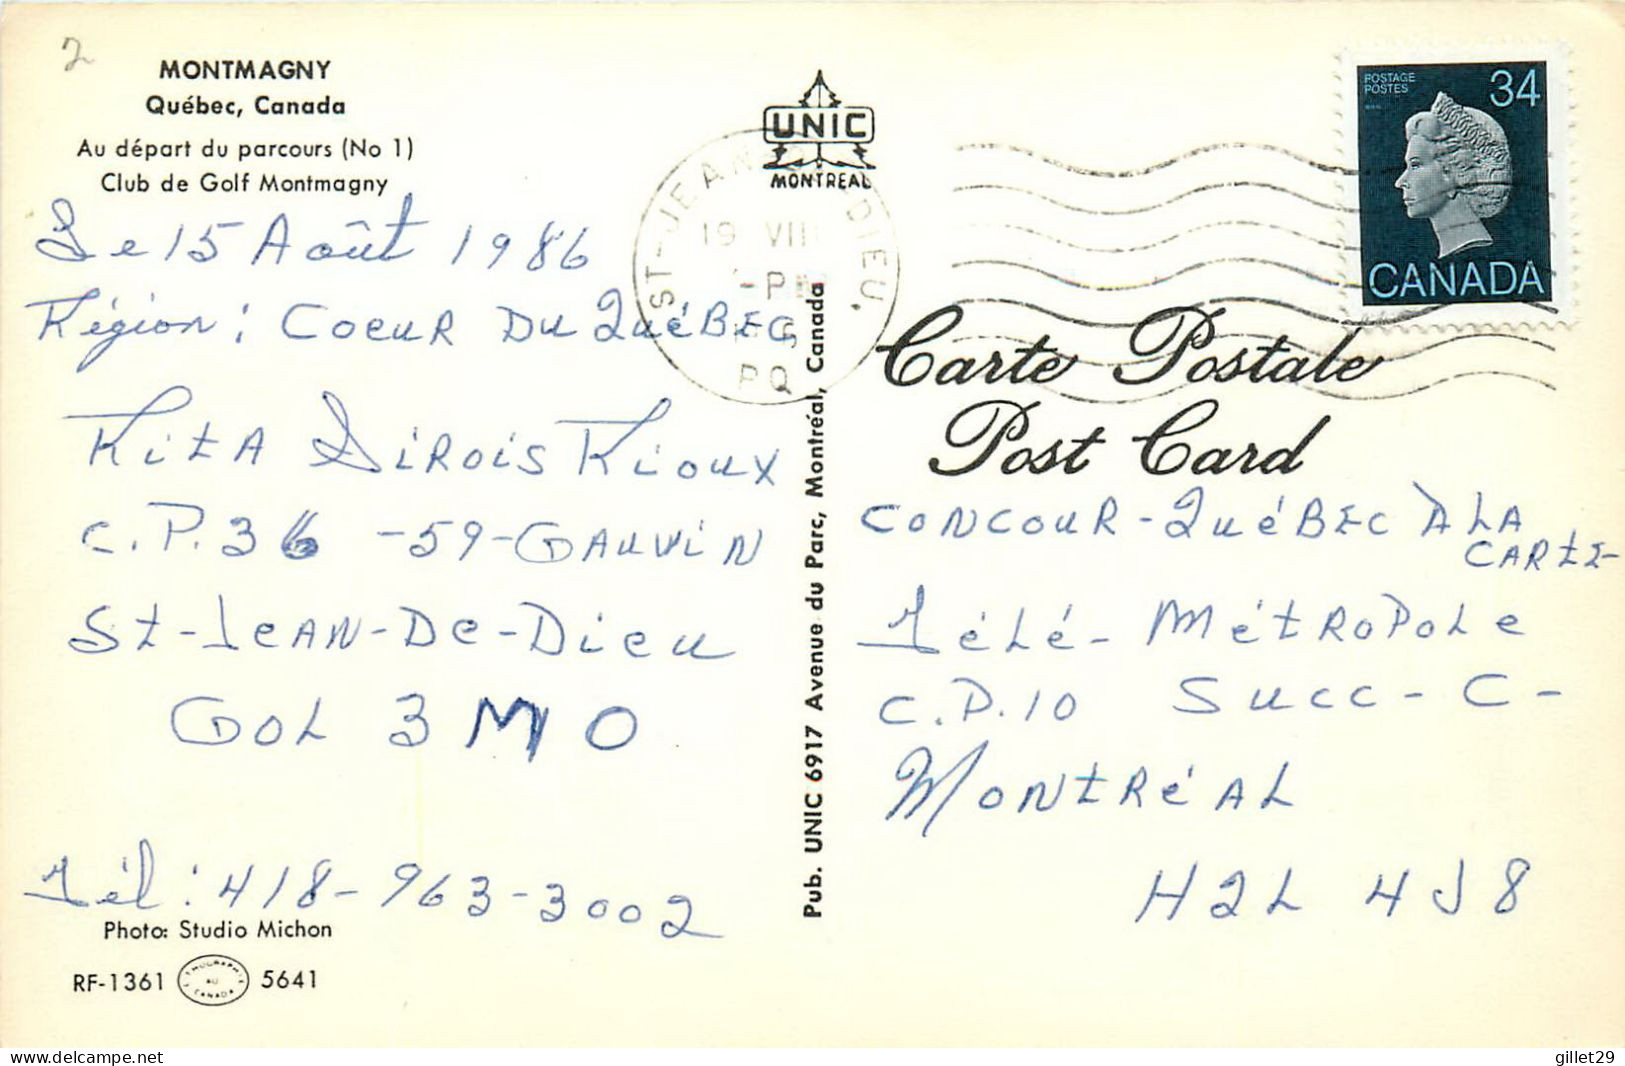 2
MONTMAGNY
Québec, Canada
Au départ du parcours (No 1)
Club de Golf Montmagny
Le 15 Août 1986
Région : COEUR DU QUÉBEC
RITA SIROIS RIOUX
C.P. 36 - 59 - GAUVIN
St-JEAN-De-DIEU
GOL 3MO
Tél : 418-963-3002
Photo: Studio Michon
RF-1361
LITHOGRAPHIÉ AU CANADA
5641
Pub. UNIC 6917 Avenue du Parc, Montréal, Canada
UNIC
MONTREAL
ST-JEAN DIEU,
19 VIII
PM
PQ
POSTAGE
POSTES
34
CANADA
Carte Postale
Post Card
CONCOUR - QUÉBEC A LA
CARTE
TÉLÉ - MÉTROPOLE
C.P. 10 SUCC - C -
MONTRÉAL
H2L 4J8
delcampe.net
gillet29